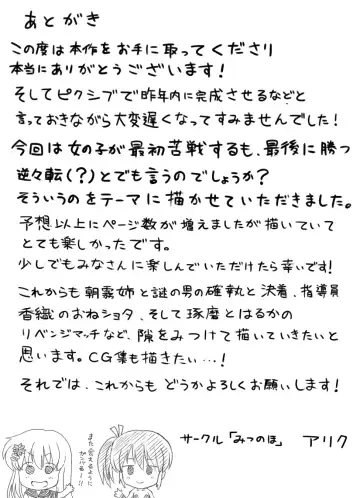 あとがき
この度は本作をお手に取ってくださり
本当にありがとうございます！
そしてピクシブで昨年内に完成させるなどと
言っておきながら大変遅くなってすみませんでした！
今回は女の子が最初苦戦するも、最後に勝つ
逆転(？)とでも言うのでしょうか？
そういうのをテーマに描かせていただきました。
予想以上にページ数が増えましたが描いていて
とても楽しかったです。
少しでもみなさんに楽しんでいただけたら幸いです！
これからも朝義姉と謎の男の確執と決着、指導員
香織のおねショタ、そして琢磨とはるかの
リベンジマッチなど、隙をみつけて描いていきたいと
思います。CG集も描きたい…！
それでは、これからもどうかよろしくお願いします！
また会えるように
がんばるー!!
サークル「みつのほ」 アリク